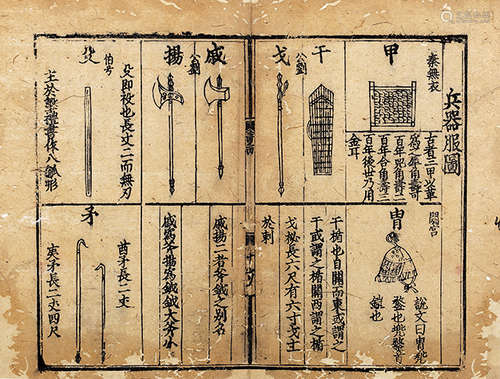 兵器服圖
秦無衣
甲
古者三甲以革
為之犀甲壽
百年兕甲壽二
百年合甲壽三
百年後世乃用
金耳
閟宮
冑
說文曰冑兠
鍪也兠鍪首
鎧也
干
公劉
戈
干楯也自關而東或謂之
干或謂之楯關西謂之楯
戈柲長六尺有六寸戈主
於刺
戚
公劉
揚
戚揚二者斧鉞之別名
戚為斧揚為鉞鉞大斧小
殳
伯兮
殳即祋也長丈二而無刃
主於擊禮書作八觚形
矛
酋矛長二丈
夷矛長二丈四尺